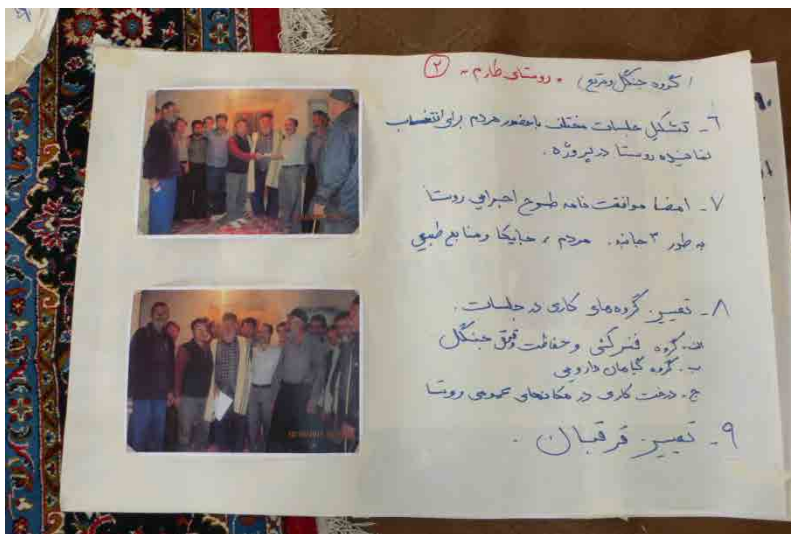 (گروه جنگل و مرتع) " روستای طارم " ۲
۶- تشکیل جلسات مختلف با حضور مردم برای انتخاب
نماینده روستا در پروژه .
۷- امضا موافقت نامه طرح اجرایی روستا
به طور ۳ جانبه . مردم ، جایکا و منابع طبیعی
۸- تعیین گروه‌های کاری در جلسات .
الف- گروه فنس کشی و حفاظت و قرق جنگل
ب- گروه گیاهان دارویی
ج- درخت کاری در مکانهای عمومی روستا
۹- تعیین قرقبان .